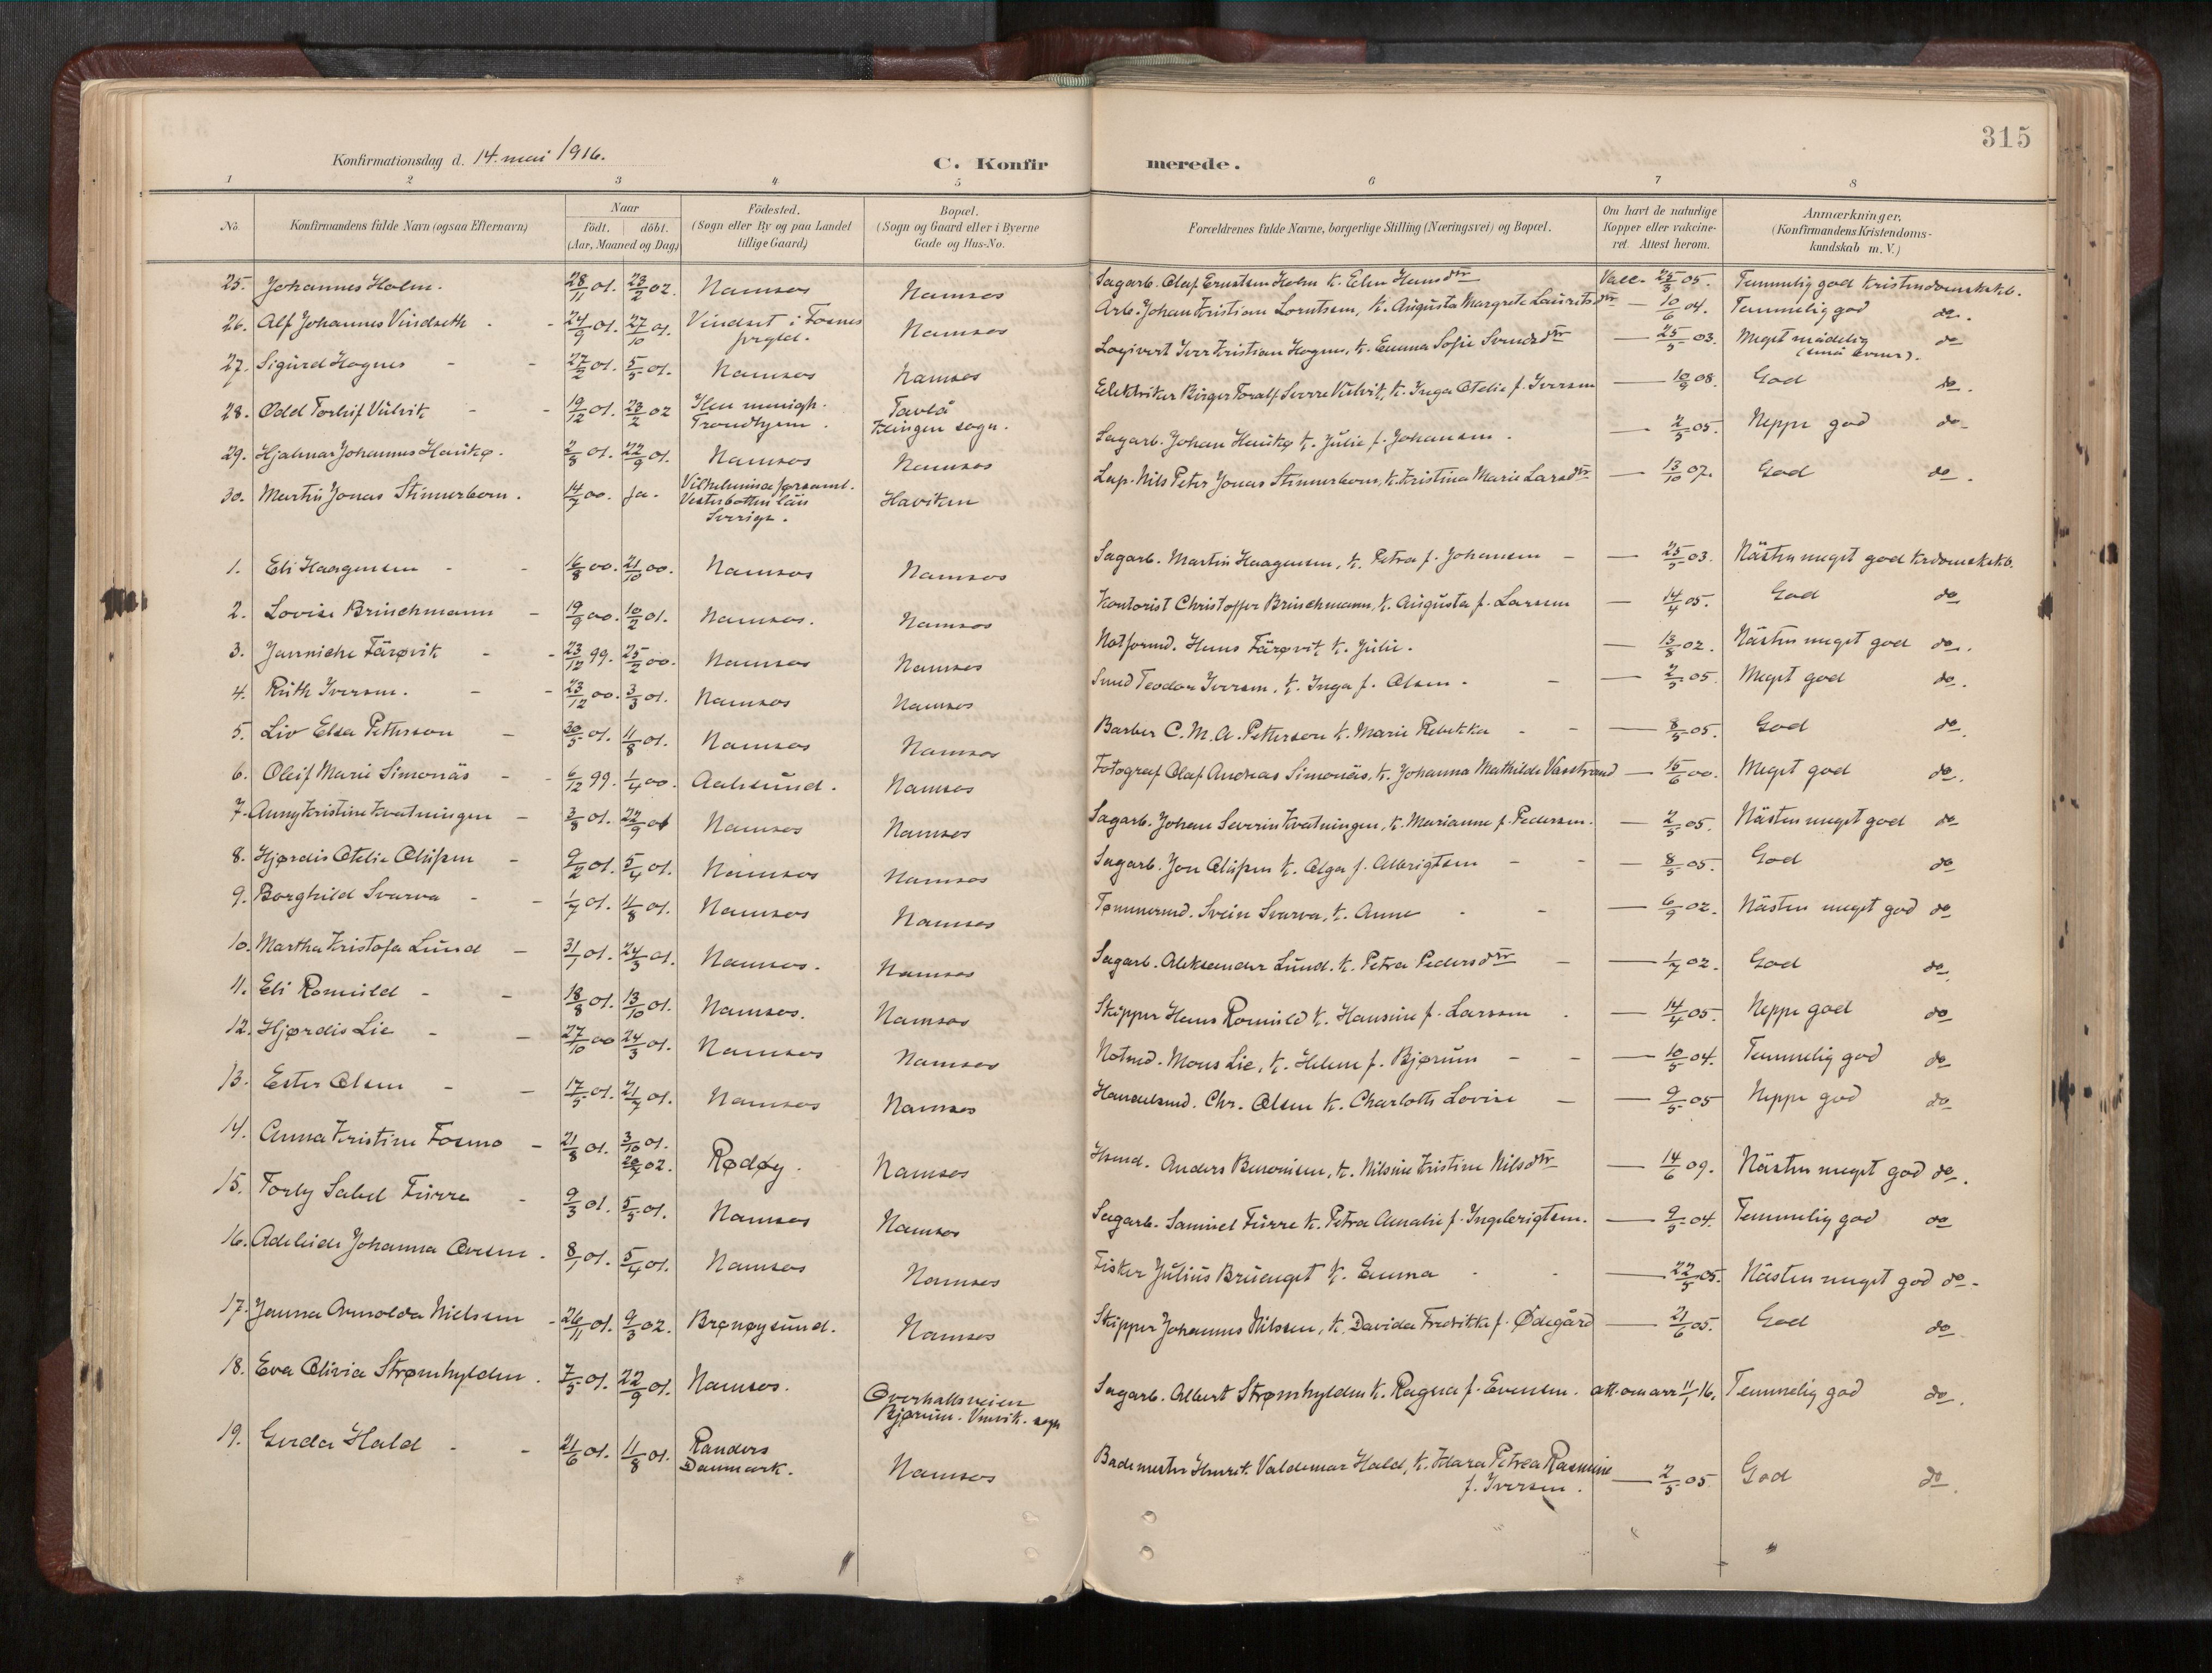 315
Konfirmationsdag d. 14. mai 1916.
C. Konfirmerede.
1 2 3 4 5 6 7 8
No. Konfirmandens fulde Navn (ogsaa Efternavn) Naar födt. döbt. (Aar, Maaned og Dag) Födested. (Sogn eller By og paa Landet tillige Gaard) Bopæl. (Sogn og Gaard eller i Byerne Gade og Hus-No. Forældrenes fulde Navne, borgerlige Stilling (Næringsvei) og Bopæl. Om havt de naturlige Kopper eller vakcineret. Attest herom. Anmærkninger. (Konfirmandens Kristendomskundskab m. V.)
25. Johannes Holm. 28/11 01. 23/2 02. Namsos Namsos Sagarb. Olaf Ernstsen Holm k. Elen Hansdtr Vacc. 25/3 05. Temmelig god Kristendomskskb.
26. Alf Johannes Vindseth - - 24/9 01. 27/10 01. Vindset i Fosnes prgld. Namsos Arb. Johan Kristian Lorntsen, k. Augusta Margrete Lauritsdtr — 10/6 04. Temmelig god do.
27. Sigurd Hognes - - 27/2 01. 5/5 01. Namsos Namsos Logivert Iver Kristian Hognes, k. Emma Sofie Svendsdtr — 25/5 03. Meget mådelig (små evner). do
28. Odd Torleif Vulvik - - 19/12 01. 23/2 02 Ilen menigh. Trondhjem. Tavlå Klingen sogn. Elektriker Birger Toralf Sverre Vulvik, k. Inga Otelie f. Iversen — 10/9 08. God do.
29. Hjalmar Johannes Haukø. 2/8 01. 22/9 01. Namsos Namsos Sagarb. Johan Haukø k. Julie f. Johansen. — 2/5 05. Neppe god do
30. Martin Jonas Stinnerbom. 14/7 00. ja. Vilhelmina forsaml. Vesterbotten län Sverige. Haviken Lap. Nils Peter Jonas Stinnerbom, k. Kristina Marie Larsdtr — 13/10 07. God do.
1. Eli Haagensen - - 16/8 00. 21/10 00. Namsos Namsos Sagarb. Martin Haagensen, k. Petra f. Johansen - — 25/5 03. Nästen meget god krdomskskb.
2. Lovise Brinchmann - 19/9 00. 10/2 01. Namsos. Namsos Kontorist Christoffer Brinchmann, k. Augusta f. Larsen — 14/4 05. God do
3. Janniche Färøvik - - 23/12 99. 25/2 00. Namsos Namsos Notformd. Hans Färøvik k. Julie. — 13/8 02. Nästen meget god do.
4. Ruth Iversen. - - 23/12 00. 3/3 01. Namsos Namsos Smed Teodor Iversen, k. Inga f. Olsen. - — 2/5 05. Meget god do.
5. Liv Elsa Petterson - 30/5 01. 11/8 01. Namsos Namsos Barber C. M. A. Petterson k. Marie Rebekka - - — 8/5 05. God do.
6. Oleif Marie Simonäs - - 6/12 99. 1/4 00. Aalesund. Namsos Fotograf Olaf Andreas Simonäs, k. Johanna Mathilde Vasstrand — 15/6 00. Meget god do.
7. Anny Kristine Kvatningen - 3/8 01. 22/9 01 Namsos Namsos Sagarb. Johan Severin Kvatningen, k. Marianne f. Pedersen. — 2/5 05. Nästen meget god do
8. Hjørdis Otelie Olufsen - 9/2 01. 5/4 01. Namsos Namsos Sagarb. Jon Olufsen k. Olga f. Albrigtsen - - — 8/5 05. God do
9. Borghild Svarva - - 1/7 01. 11/8 01. Namsos Namsos Tømmermd. Svein Svarva, k. Anne - - — 6/9 02. Nästen meget god do
10. Martha Kristofa Lund - 31/1 01. 24/3 01. Namsos. Namsos Sagarb. Aleksander Lund. k. Petra Pedersdtr - — 1/7 02. God do.
11. Eli Romuld - - 18/8 01. 13/10 01. Namsos. Namsos Skipper Hans Romuld k. Hansine f. Larsen . — 14/4 05. Neppe god do
12. Hjørdis Lie - - 27/10 00 24/3 01. Namsos Namsos Notmd. Mons Lie, k. Helene f. Bjørum - - — 10/5 04. Temmelig god do
13. Ester Olsen - - 17/5 01. 21/7 01. Namsos Namsos Handelsmd. Chr. Olsen k. Charlotte Lovise - — 9/5 05 Neppe god do
14. Anna Kristine Fosmo - 21/8 01. 3/10 01. 20/7 02. Rødøy. Namsos Hsmd. Anders Benonisen, k. Nilsine Kristine Nilsdtr — 14/6 09. Nästen meget god do.
15. Torly Salul Furre - 9/3 01. 5/5 01. Namsos Namsos Sagarb. Samuel Furre k. Petra Amalie f. Ingebrigtsen. — 9/5 04. Temmelig god do
16. Adeleide Johanna Ovesen. 8/1 01. 5/4 01. Namsos Namsos Fisker Julius Bruenget k. Emma - - — 22/5 05. Nästen meget god do.
17. Janna Arnolda Nielsen - 26/11 01. 9/3 02. Brønøysund. Namsos Skipper Johannes Nilssen, k. Davida Fredrikka f. Ødegård — 21/6 05. God do
18. Eva Olivia Strømhylden. 7/5 01. 22/9 01. Namsos. Overhallsveien Bjørum. Vemvik. sogn Sagarb. Albert Strømhylden k. Ragna f. Evensen. att. om arr 11/1 16. Temmelig god do.
19. Gerda Hald - - 21/6 01. 11/8 01. Randers Danmark. Namsos Bademester Henrik Valdemar Hald, k. Klara Petrea Rasmine f. Iversen. — 2/5 05. God do.